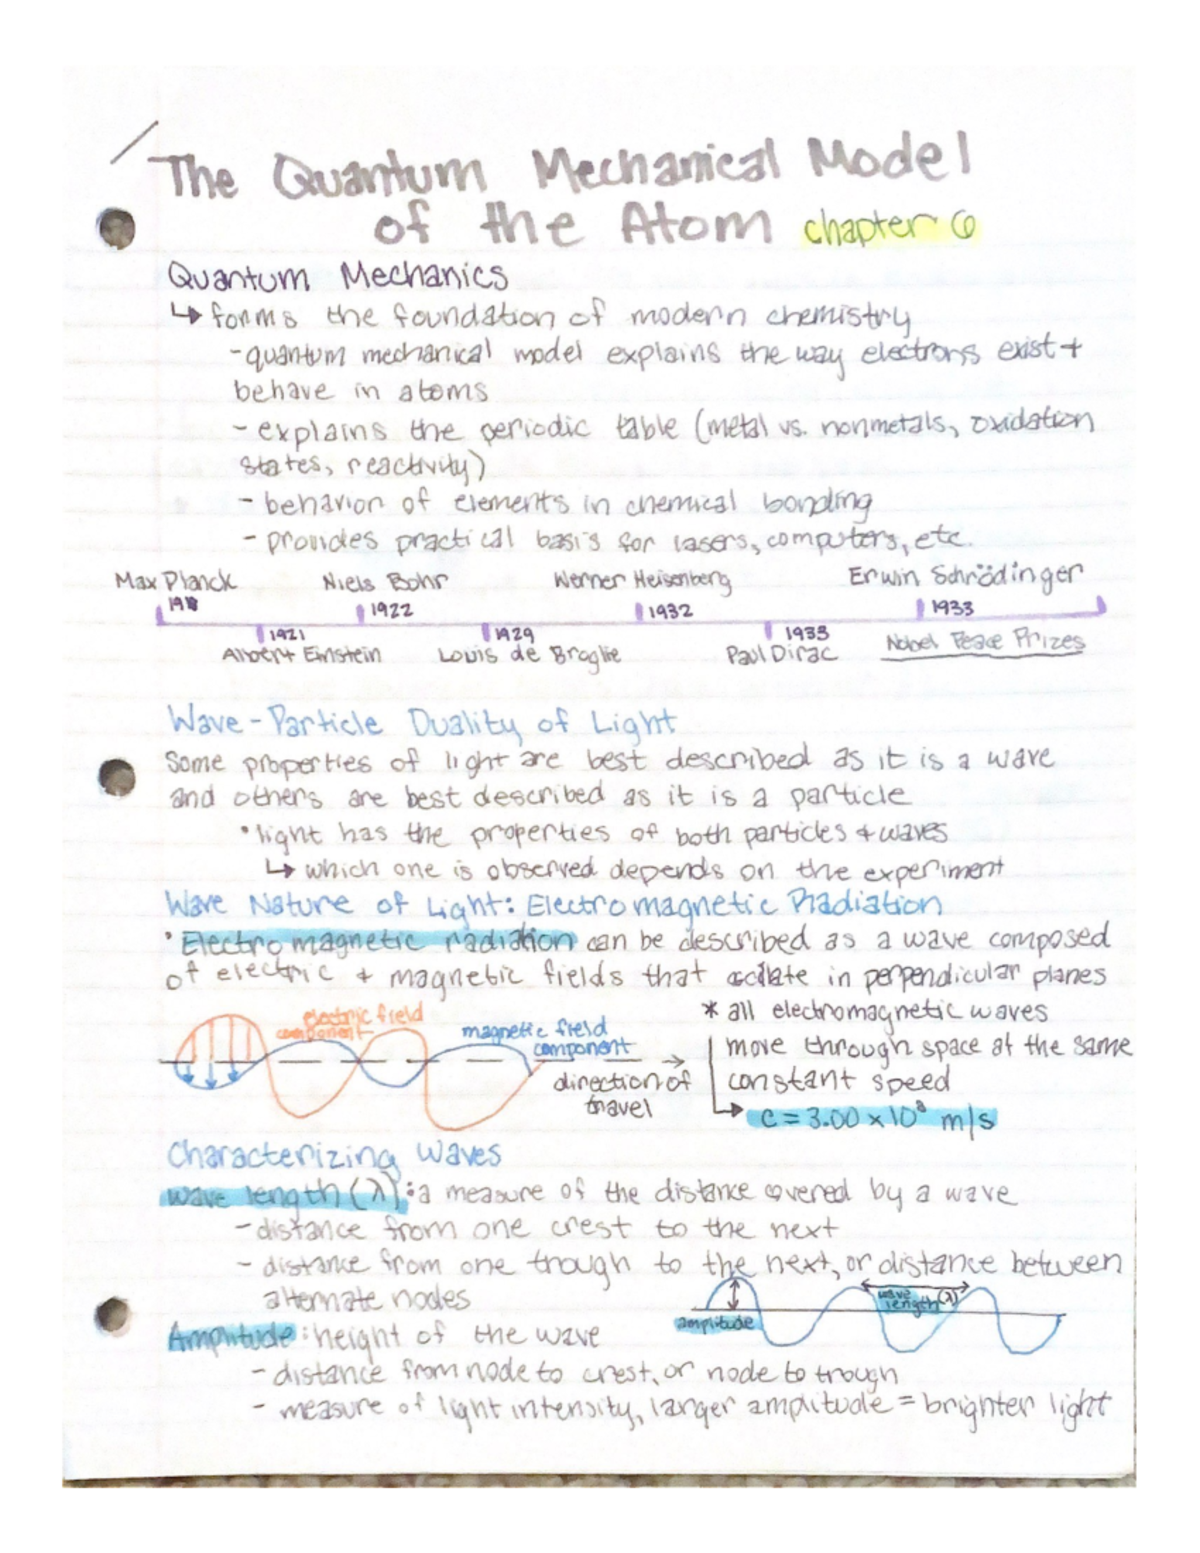 The Quantum Mechanical Model
of the Atom chapter 6
Quantum Mechanics
↳ forms the foundation of modern chemistry
- quantum mechanical model explains the way electrons exist +
behave in atoms
- explains the periodic table (metal vs. nonmetals, oxidation
states, reactivity)
- behavior of elements in chemical bonding
- provides practical basis for lasers, computers, etc.
Max Planck Niels Bohr Werner Heisenberg Erwin Schrödinger
1922 1932 1933
1921 1929 1933
Albert Einstein Louis de Broglie Paul Dirac Nobel Peace Prizes
Wave-Particle Duality of Light
Some properties of light are best described as it is a wave
and others are best described as it is a particle
• light has the properties of both particles + waves
↳ which one is observed depends on the experiment
Wave Nature of Light: Electromagnetic Radiation
• Electromagnetic radiation can be described as a wave composed
of electric + magnetic fields that in perpendicular planes
electric field
component
magnetic field
component
direction of
travel
* all electromagnetic waves
move through space at the same
constant speed
↳ c = 3.00 x 10⁸ m/s
Characterizing Waves
wave length (λ): a measure of the distance covered by a wave
- distance from one crest to the next
- distance from one trough to the next, or distance between
alternate nodes
wave
length (λ)
amplitude
Amplitude: height of the wave
- distance from node to crest, or node to trough
- measure of light intensity, larger amplitude = brighter light